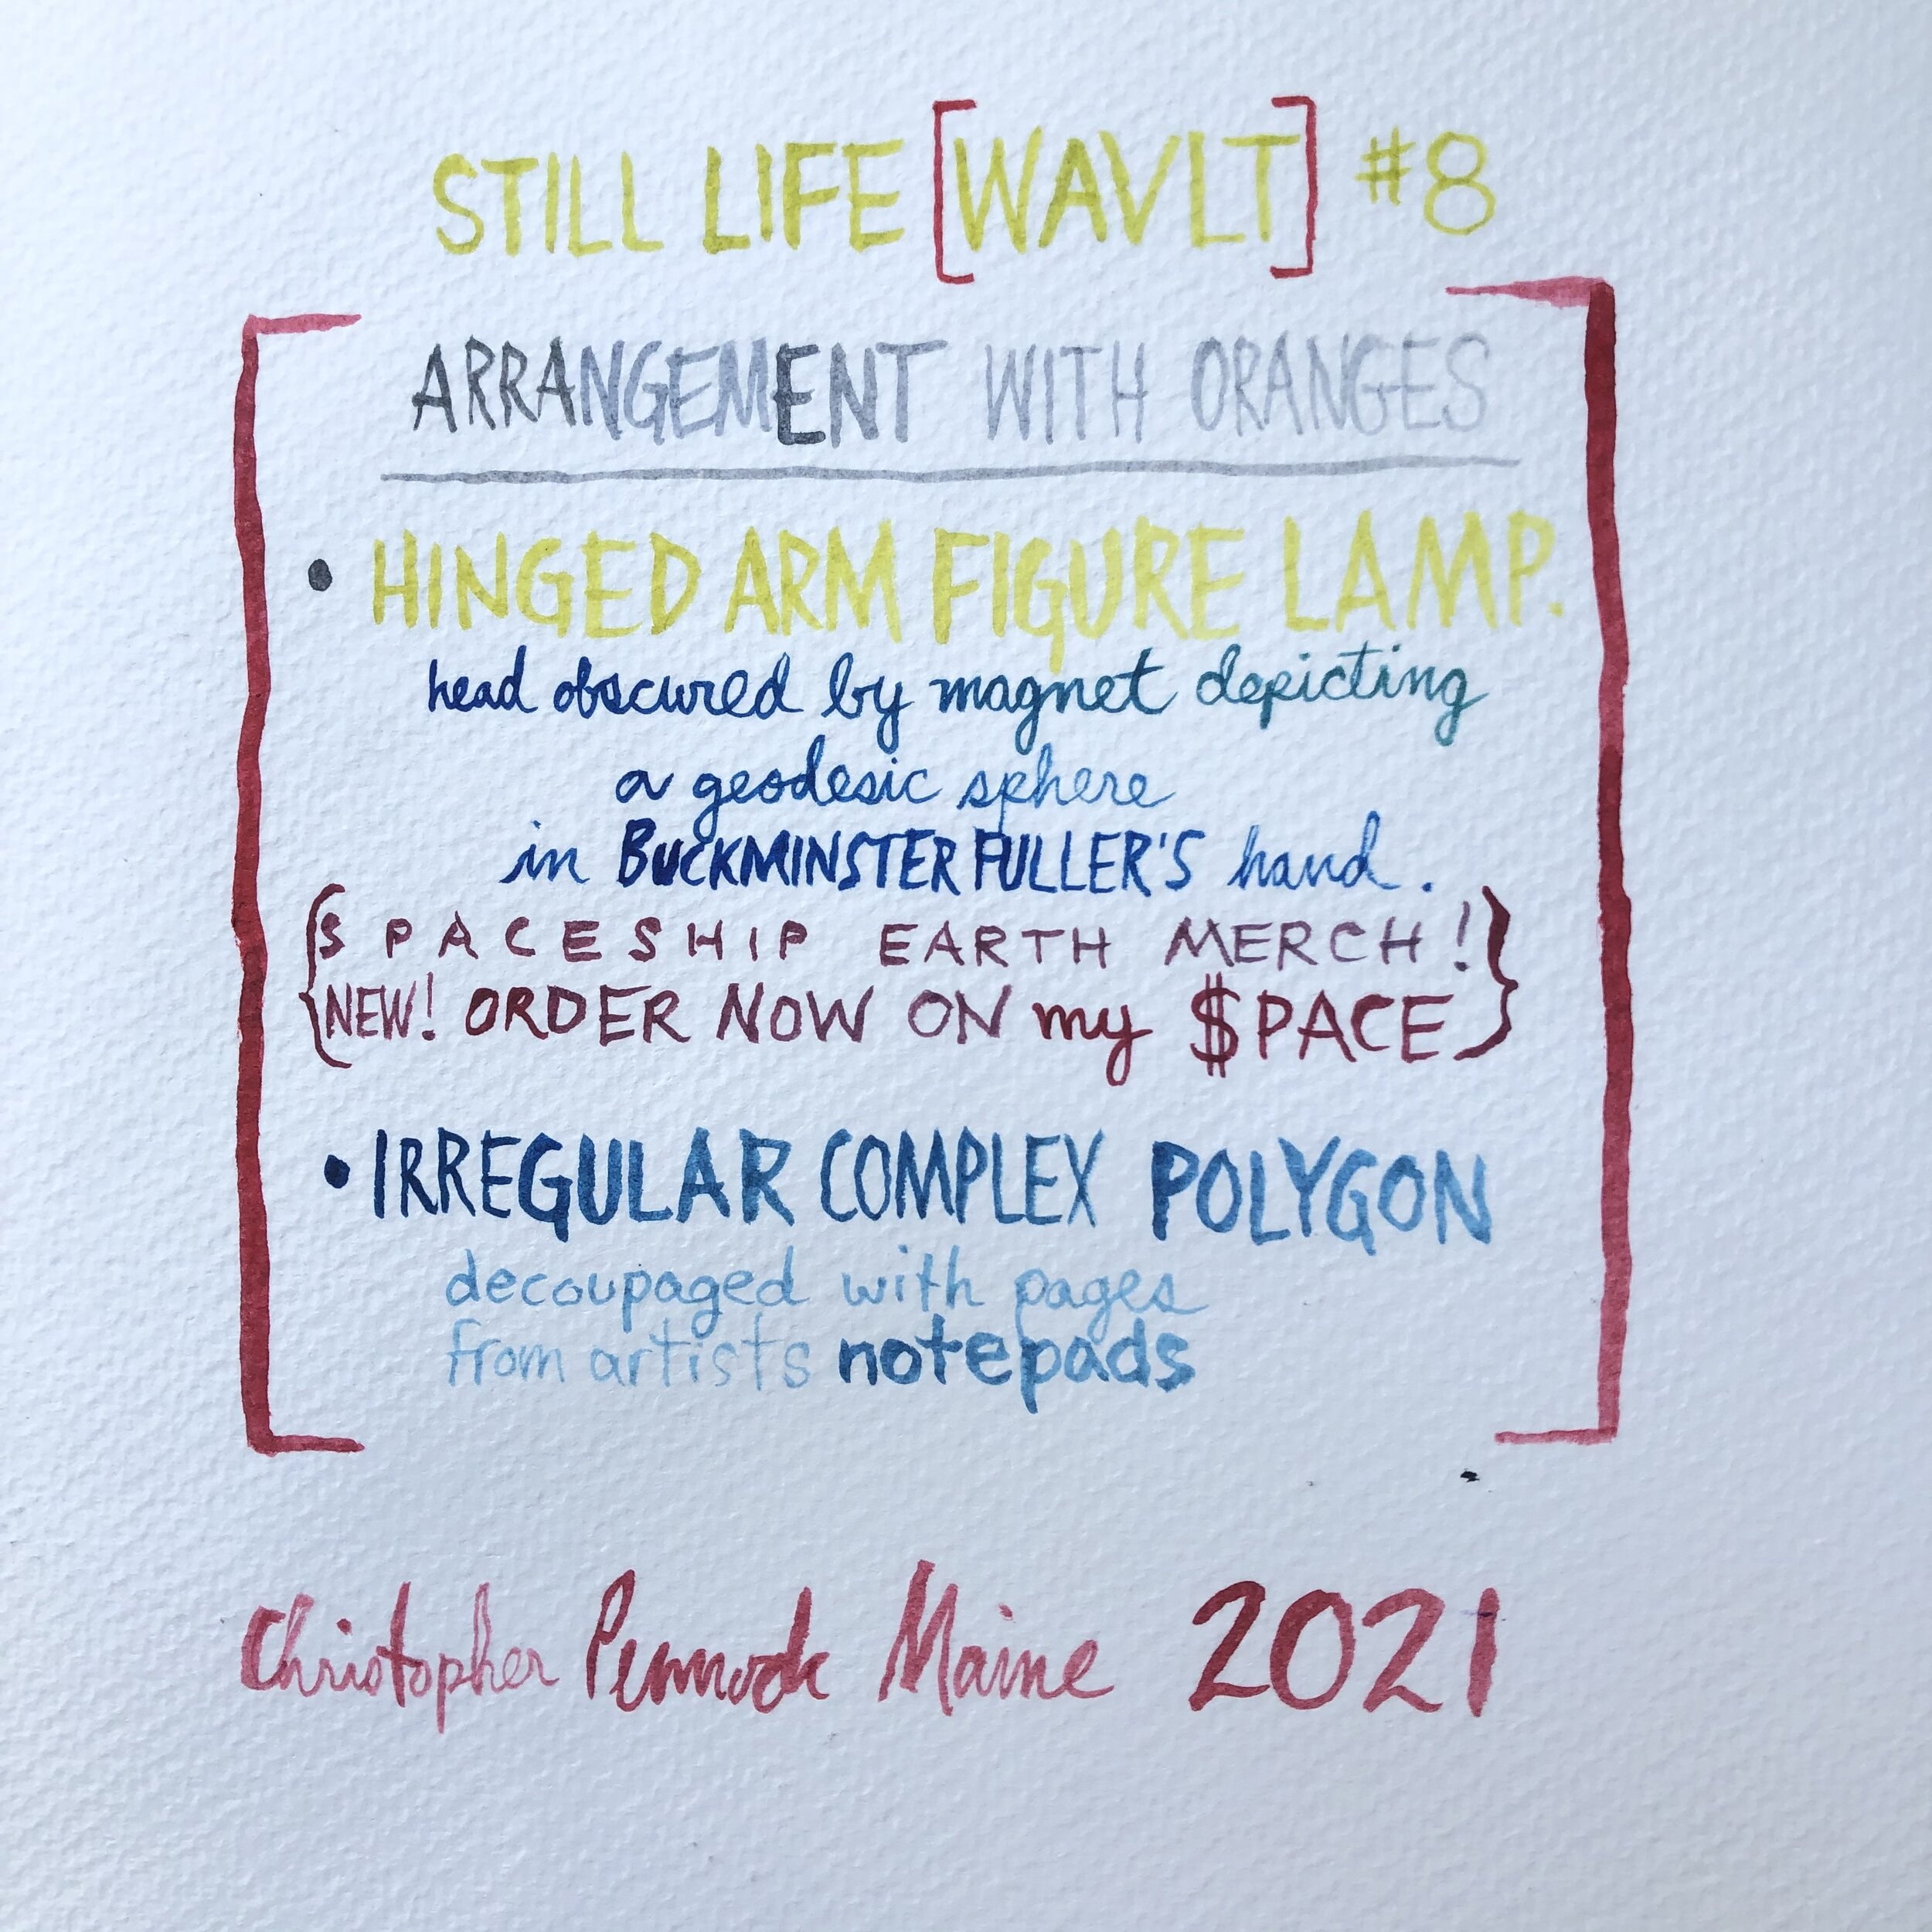 STILL LIFE [WAVLT] #8
ARRANGEMENT WITH ORANGES
• HINGED ARM FIGURE LAMP.
head obscured by magnet depicting
a geodesic sphere
in BUCKMINSTER FULLER'S hand.
{SPACESHIP EARTH MERCH!
NEW! ORDER NOW ON my $PACE}
• IRREGULAR COMPLEX POLYGON
decoupaged with pages
from artists notepads
Christopher Pennock Maine 2021